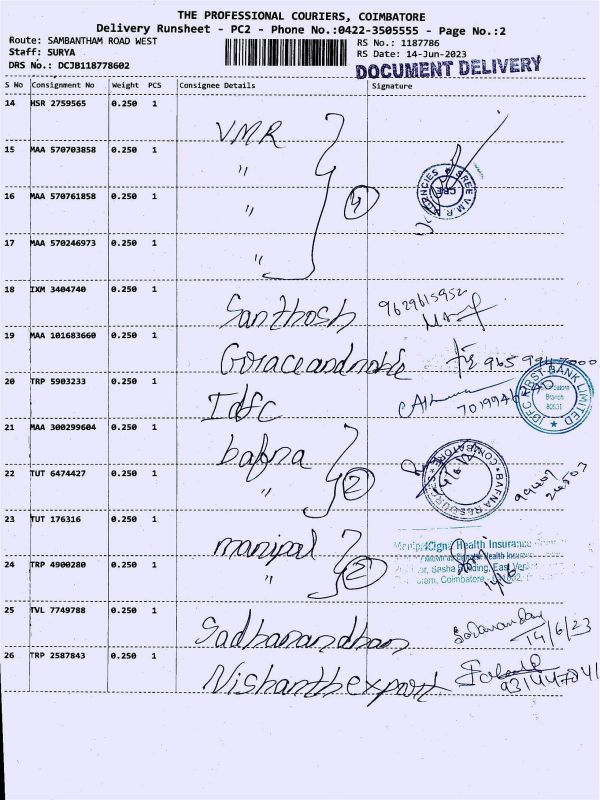 THE PROFESSIONAL COURIERS, COIMBATORE
Delivery Runsheet - PC2 - Phone No.:0422-3505555 - Page No.:2
Route: SAMBANTHAM ROAD WEST
RS No.: 1187786
Staff: SURYA
RS Date: 14-Jun-2023
DRS No.: DCJB118778602
DOCUMENT DELIVERY
S No Consignment No Weight PCS Consignee Details Signature
14 HSR 2759565 0.250 1 VMR
15 MAA 570703858 0.250 1 "
16 MAA 570761858 0.250 1 " 4
17 MAA 570246973 0.250 1 "
18 IXM 3404740 0.250 1 Santhosh 9629615952
19 MAA 101683660 0.250 1
20 TRP 5903233 0.250 1 Idfc
IDFC FIRST BANK LIMITED
Branch
21 MAA 300299604 0.250 1 bafna
22 TUT 6474427 0.250 1 " 2
COIMBATORE
BAFNA RESOURCES
23 TUT 176316 0.250 1 manipal
24 TRP 4900280 0.250 1 " 2
Health Insurance
25 TVL 7749788 0.250 1 Sadhanandhan
14/6/23
26 TRP 2587843 0.250 1 Nishanth export